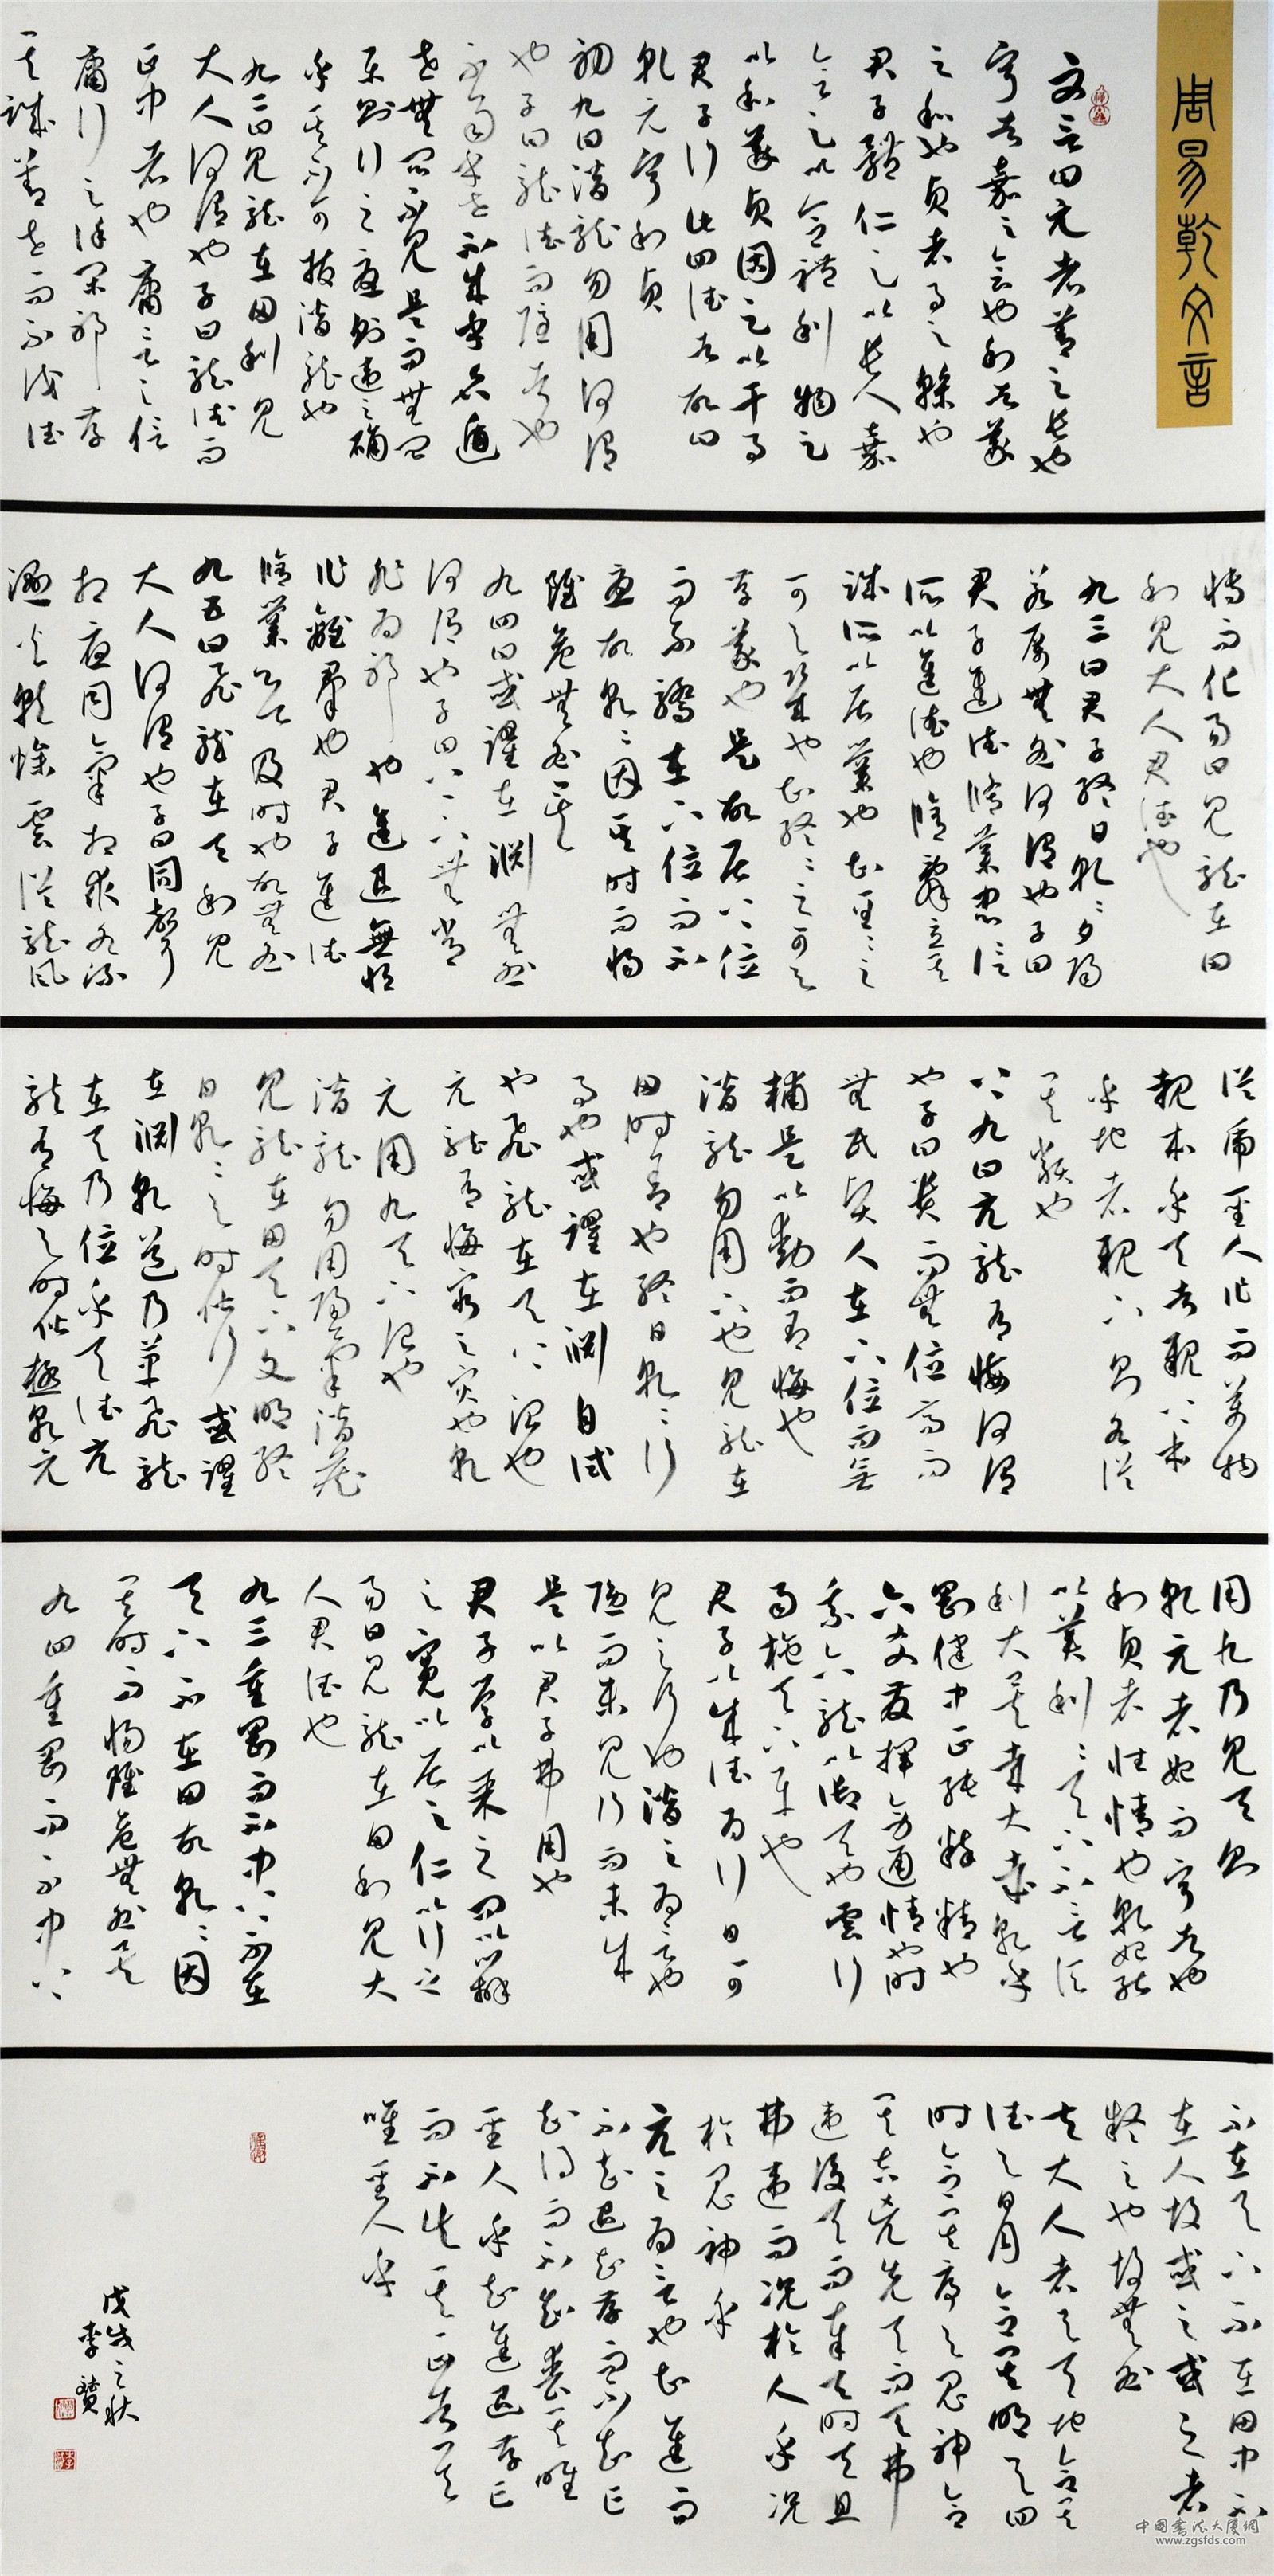 周易乾文言
文言曰元者善之長也
亨者嘉之會也利者義
之和也貞者事之幹也
君子體仁足以長人嘉
會足以合禮利物足
以和義貞固足以干事
君子行此四德者故曰
乾元亨利貞
初九曰潛龍勿用何謂
也子曰龍德而隱者也
不易乎世不成乎名遁
世無悶不見是而無悶
樂則行之憂則違之確
乎其不可拔潛龍也
九二曰見龍在田利見
大人何謂也子曰龍德而
正中者也庸言之信
庸行之謹閑邪存
其誠善世而不伐德
博而化易曰見龍在田
利見大人君德也
九三曰君子終日乾乾夕惕
若厲無咎何謂也子曰
君子進德修業忠信
所以進德也修辭立其
誠所以居業也知至至之
可與幾也知終終之可與
存義也是故居上位
而不驕在下位而不
憂故乾乾因其時而惕
雖危無咎矣
九四曰或躍在淵無咎
何謂也子曰上下無常
非為邪也進退無恆
非離群也君子進德
修業欲及時也故無咎
九五曰飛龍在天利見
大人何謂也子曰同聲
相應同氣相求水流
濕火就燥雲從龍風
從虎聖人作而萬物
覩本乎天者親上本
乎地者親下則各從
其類也
上九曰亢龍有悔何謂
也子曰貴而無位高而
無民賢人在下位而無
輔是以動而有悔也
潛龍勿用下也見龍在
田時舍也終日乾乾行
事也或躍在淵自試
也飛龍在天上治也
亢龍有悔窮之災也乾
元用九天下治也
潛龍勿用陽氣潛藏
見龍在田天下文明終
日乾乾與時偕行或躍
在淵乾道乃革飛龍
在天乃位乎天德亢
龍有悔與時偕極乾元
用九乃見天則
乾元者始而亨者也
利貞者性情也乾始能
以美利利天下不言所
利大矣哉大哉乾乎
剛健中正純粹精也
六爻發揮旁通情也時
乘六龍以御天也雲行
雨施天下平也
君子以成德為行日可
見之行也潛之為言也
隱而未見行而未成
是以君子弗用也
君子學以聚之問以辯
之寬以居之仁以行之
易曰見龍在田利見大
人君德也
九三重剛而不中上不在
天下不在田故乾乾因
其時而惕雖危無咎矣
九四重剛而不中上
不在天下不在田中不
在人故或之或之者
疑之也故無咎
夫大人者與天地合其
德與日月合其明與四
時合其序與鬼神合
其吉凶先天而天弗
違後天而奉天時天且
弗違而況於人乎況
於鬼神乎
亢之為言也知進而
不知退知存而不知亡
知得而不知喪其唯
聖人乎知進退存亡
而不失其正者其
唯聖人乎
戊戌之秋
李
中国書法大廈網
www.zgsfds.com